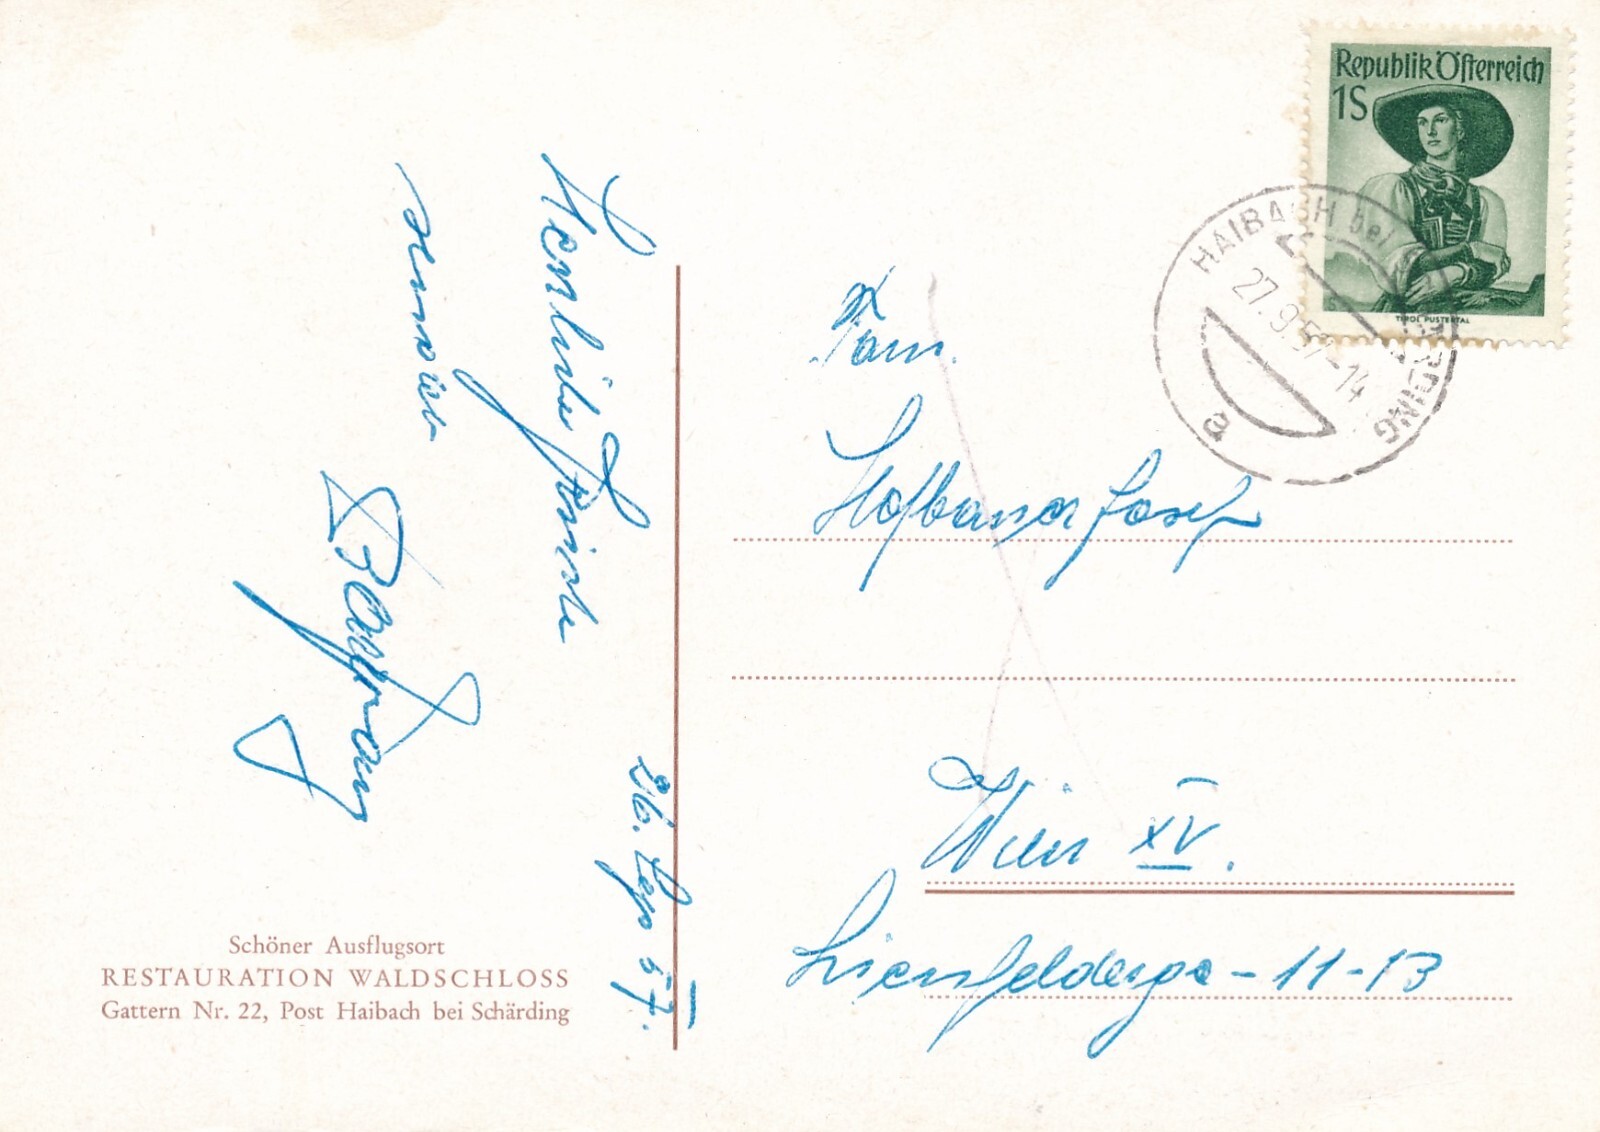 Republik Österreich
1S
TIROL PUSTERTAL
HAIBACH bei SCHÄRDING
27.9.57-14
a
26. Sep 57.
Herzliche Grüsse
senden
Fam.
Hofbauer Josef
Wien XV.
Schöner Ausflugsort
RESTAURATION WALDSCHLOSS
Gattern Nr. 22, Post Haibach bei Schärding